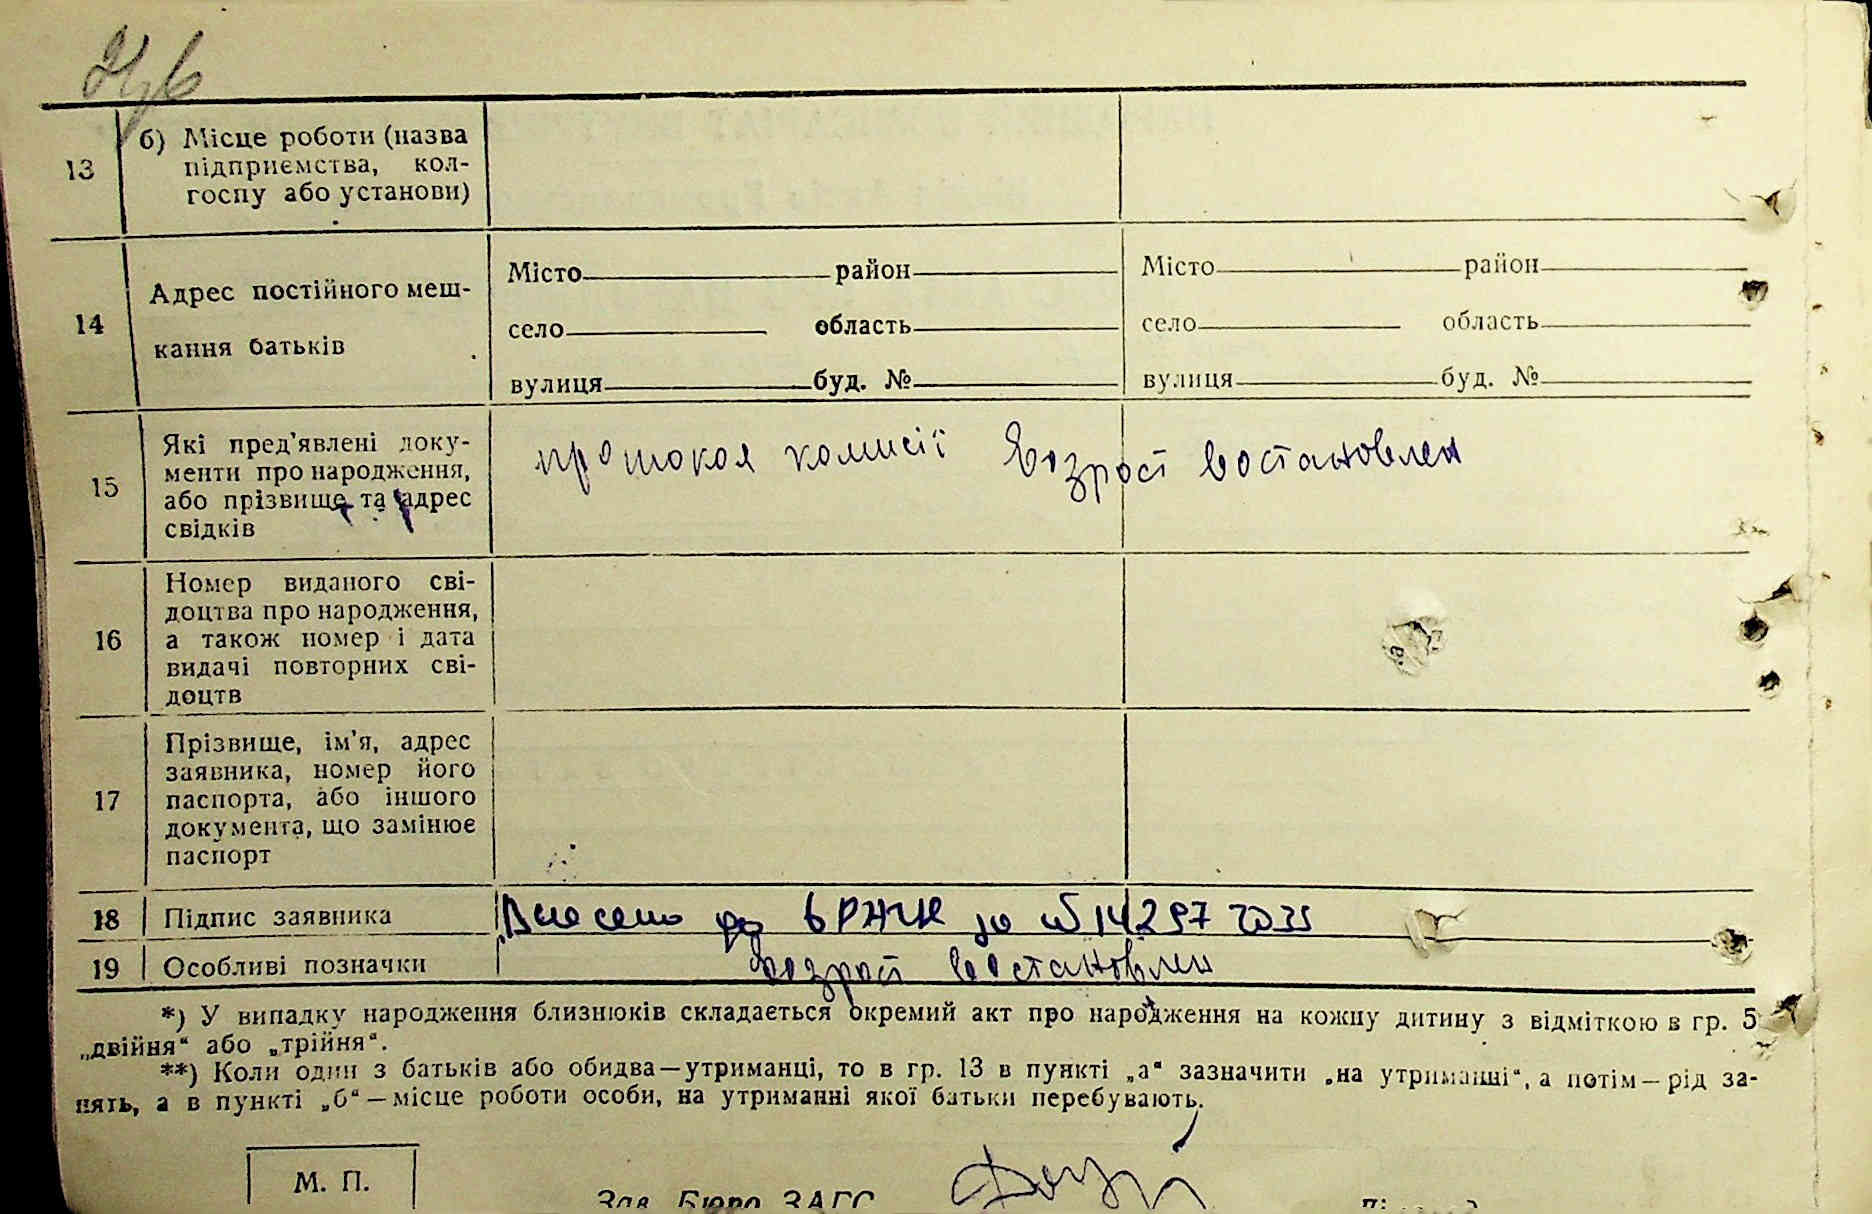 13
б) Місце роботи (назва
підприємства, кол-
госпу або установи)
14
Адрес постійного меш-
кання батьків
Місто район
село область
вулиця буд. №
Місто район
село область
вулиця буд. №
15
Які пред'явлені доку-
менти про народження,
або прізвище та адрес
свідків
протокол комисії Возраст востановлен
16
Номер виданого сві-
доцтва про народження,
а також номер і дата
видачі повторних сві-
доцтв
17
Прізвище, ім'я, адрес
заявника, номер його
паспорта, або іншого
документа, що замінює
паспорт
18 Підпис заявника
Внесено до ВРАЦС за №
19 Особливі позначки
возраст востановлен
*) У випадку народження близнюків складається окремий акт про народження на кожну дитину з відміткою в гр. 5
„двійня“ або „трійня“.
**) Коли один з батьків або обидва—утриманці, то в гр. 13 в пункті „а“ зазначити „на утриманні“, а потім—рід за-
нять, а в пункті „б“—місце роботи особи, на утриманні якої батьки перебувають.
М. П.
Зав. Бюро ЗАГС